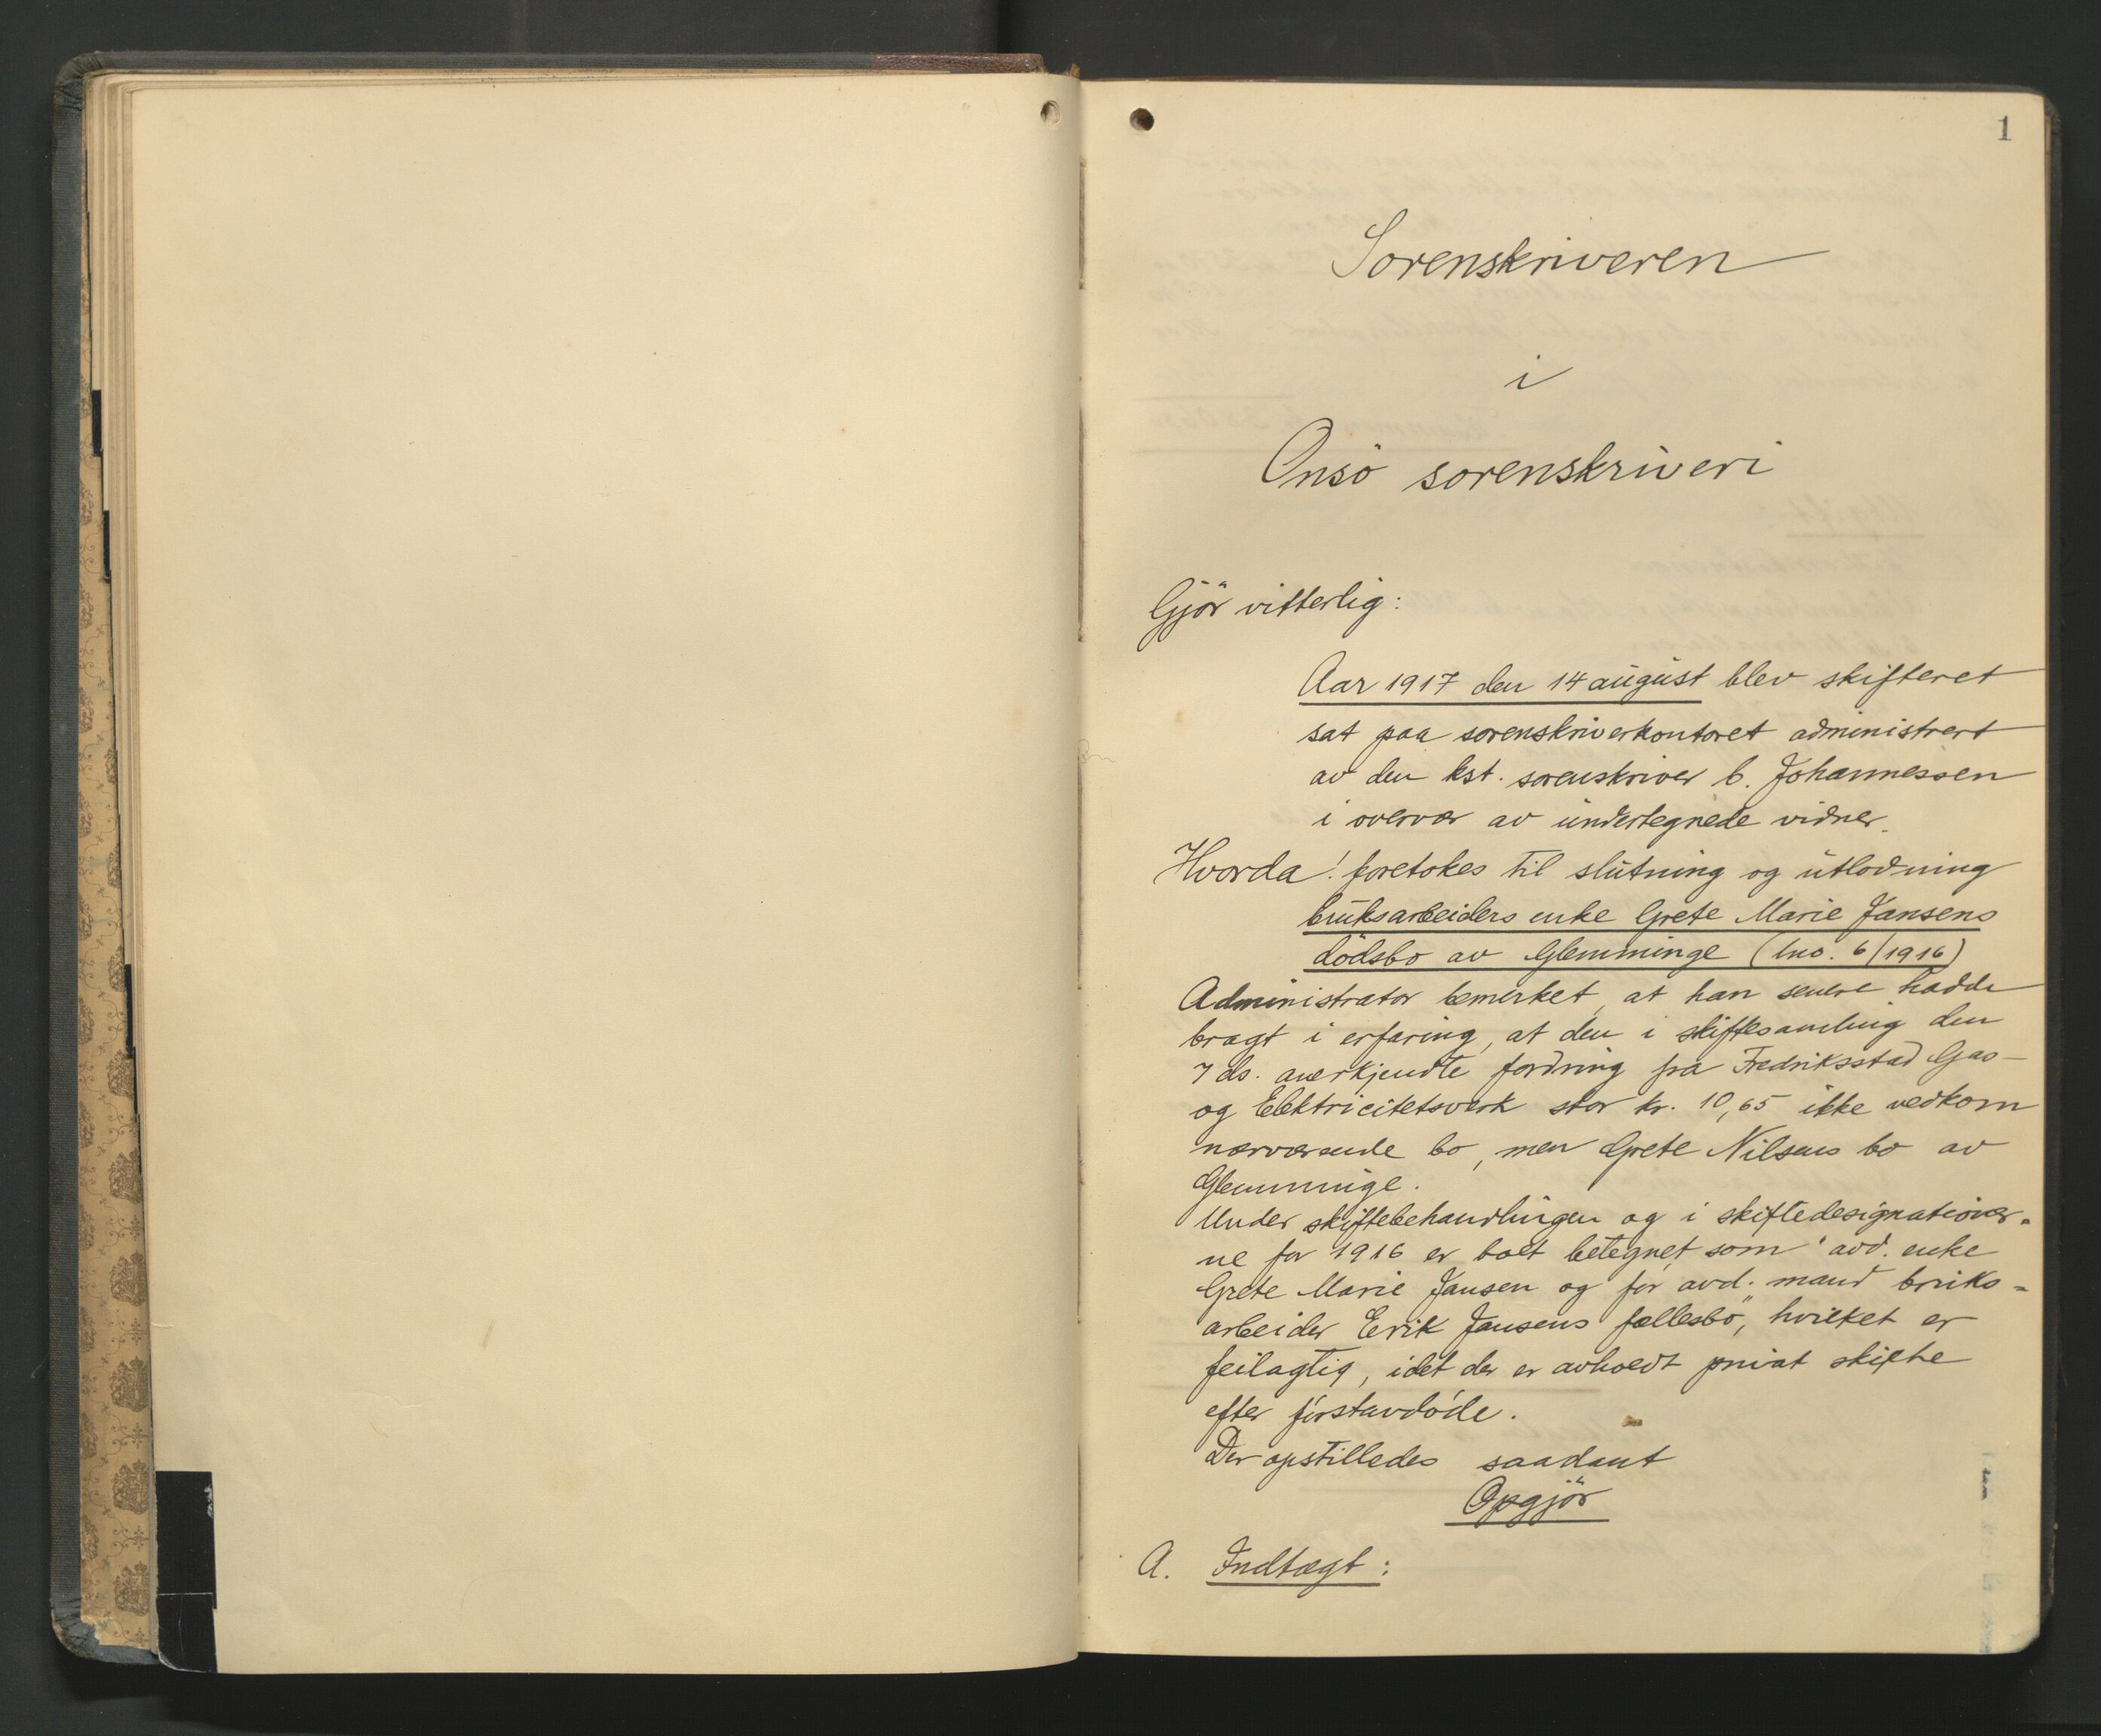 1
Sorenskriveren
i
Onsö sorenskriveri
Gjör vitterlig:
Aar 1917 den 14 august blev skifteret
sat paa sorenskriverkontoret administrert
av den kst. sorenskriver C. Johannessen
i overvær av undertegnede vidner.
Hvorda! foretokes til slutning og utlodning
bruksarbeiders enke Grete Marie Jansens
dödsbo av Glemminge (lno. 6/1916)
Administrator bemerket, at han senere hadde
bragt i erfaring, at den i skiftesamling den
7 ds. anerkjendte fordring fra Fredriksstad Gas-
og Elektricitetsverk stor kr. 10,65 ikke vedkom
nærværende bo, men Grete Nilsens bo av
Glemminge.
Under skiftebehandlingen og i skiftedesignationer-
ne for 1916 er boet betegnet som "avd. enke
Grete Marie Jansen og for avd. mand bruks=
arbeider Erik Jansens fællesbo", hvilket er
feilagtig, idet der er avholdt privat skifte
efter förstavdöde.
Der opstilledes saadant
Opgjör
A. Indtægt: